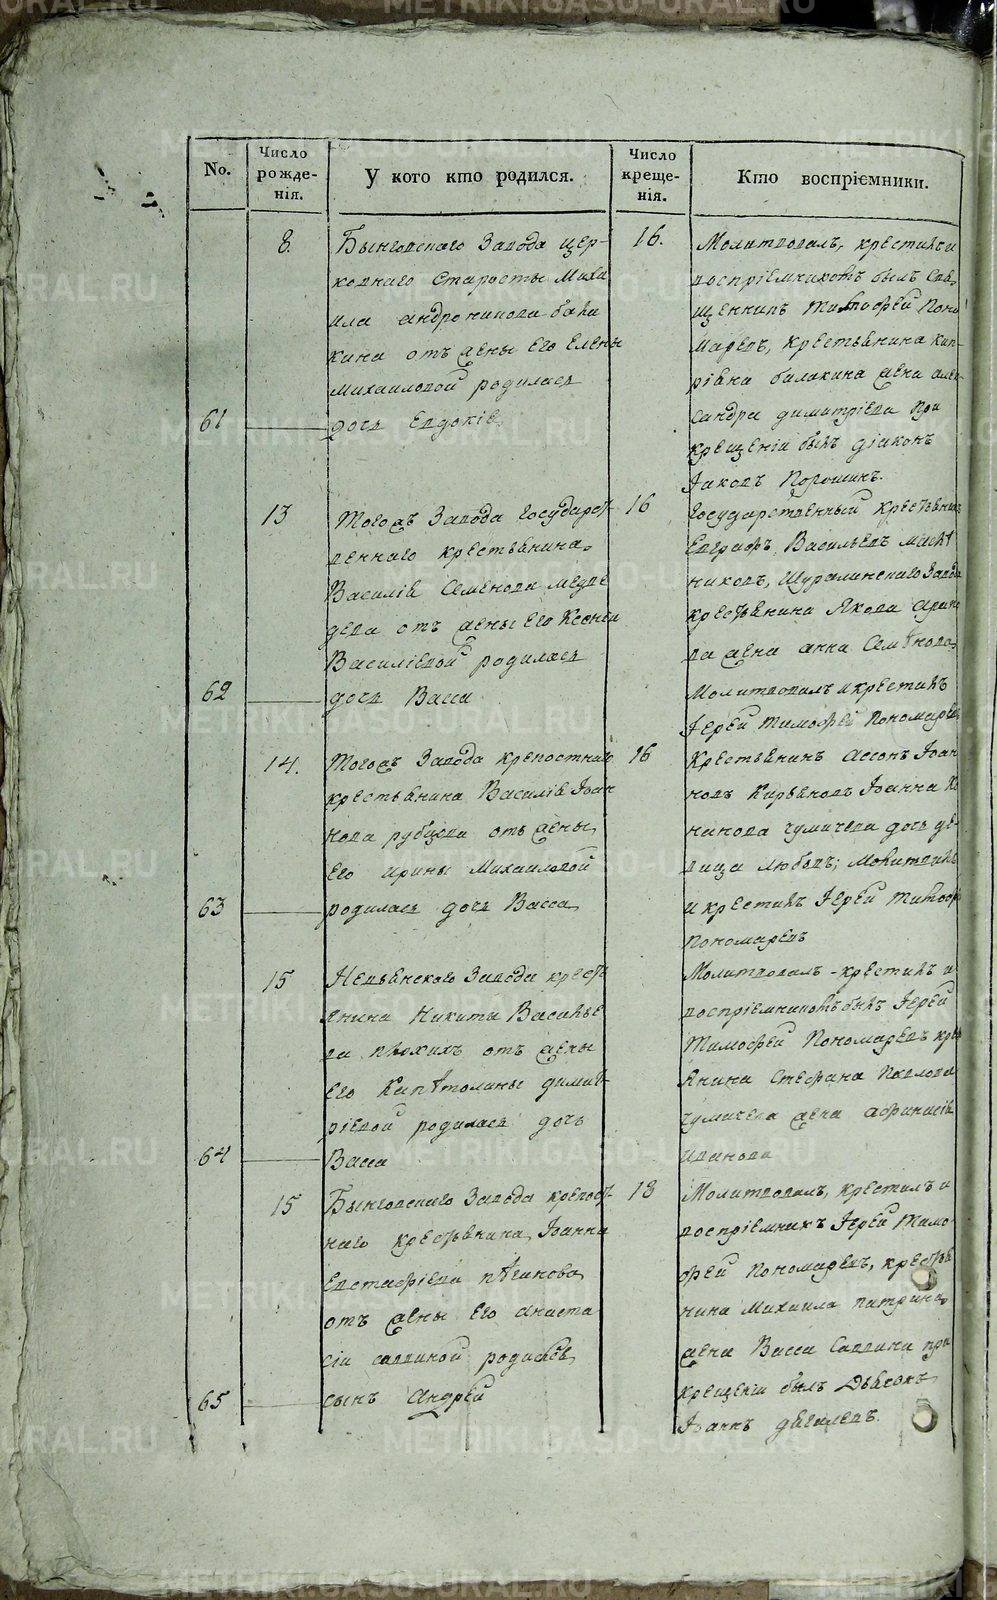 No.
Число рожденія.
У кого кто родился.
Число крещенія.
Кто воспріемники.
8.
Бынговскаго Завода цер-
ковнаго Старосты Миха
ила Андроникова Бала
кина отъ жены его Елены
Михаиловой родилась
61
дочь Евдокія
16.
Молитвовалъ, крестилъ и
воспріемникомъ былъ Свя-
щенникъ Тимофей Поно
маревъ, крестьянина Кип-
ріана Балакина жена Алек-
сандра Димитріева при
крещеніи былъ діаконъ
Іаковъ Порошинъ.
13
Тогожъ Завода Государст-
веннаго крестьянина
Василія Семенова Медве
дева отъ жены его Ксеніи
Василіевой родилась
62
дочь Васса
16
Государственный крестьянинъ
Евграфъ Васильевъ
никовъ, Шуралинскаго Завода
крестьянина Якова
жена Анна Семенова
Молитвовалъ и крестилъ
Іерей Тимофей Пономаревъ
14.
Тогожъ Завода крепостнаго
крестьянина Василія Іоан
нова Рубцова отъ жены
его Ирины Михаиловой
63
родилась дочь Васса
16
Крестьянинъ Іоан
новъ Кирьяновъ Іоанна
Чумичева дочь де-
вица Любовь; Молитвовалъ
и крестилъ Іерей Тимоф
Пономаревъ
15
Невьянского Завода крест
янина Никиты Василье
ва отъ жены
его Капѣтолины Димит-
ріевой родилась дочь
64
Васса
Молитвовалъ - крестилъ и
воспріемникомъ былъ Іерей
Тимофей Пономаревъ крест
янина Стефана Павлова
Чумичева жена Афинасія
Иванова
15
Бынговскаго Завода крепост-
наго крестьянина Іоанна
Евстафіева Пѣгинова
отъ жены его Анаста
сіи Саввиной родился
65
сынъ Андрей
18
Молитвовалъ, крестилъ и
воспріемникъ Іерей Тимо
фей Пономаревъ, крестья
нина Михаила
жена Васса Саввина при
крещеніи былъ Дьячокъ
Іоаннъ Дягилевъ.
METRIKI.GASO-URAL.RU